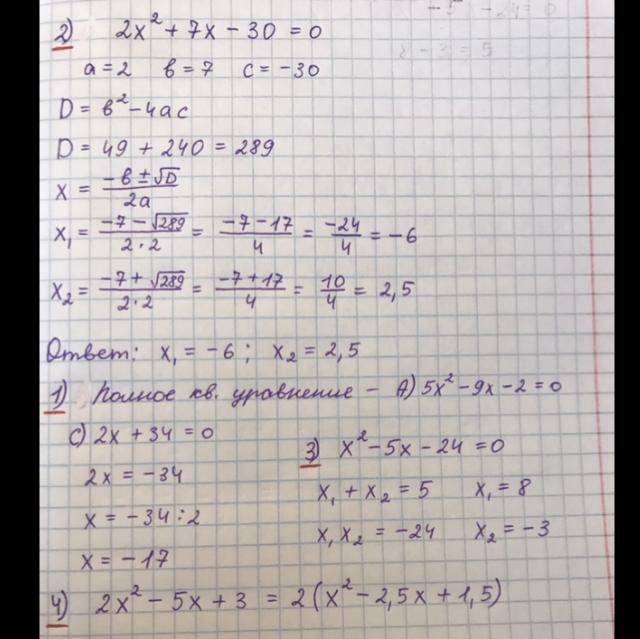 2) 2x² + 7x - 30 = 0
a = 2 в = 7 c = -30
D = в² - 4ac
D = 49 + 240 = 289
x = (-в ± √D)/(2a)
x₁ = (-7 - √289)/(2·2) = (-7 - 17)/4 = -24/4 = -6
x₂ = (-7 + √289)/(2·2) = (-7 + 17)/4 = 10/4 = 2,5
Ответ: x₁ = -6; x₂ = 2,5
1) Полное кв. уравнение - А) 5x² - 9x - 2 = 0
С) 2x + 34 = 0
2x = -34
x = -34 : 2
x = -17
3) x² - 5x - 24 = 0
x₁ + x₂ = 5 x₁ = 8
x₁ x₂ = -24 x₂ = -3
4) 2x² - 5x + 3 = 2(x² - 2,5x + 1,5)